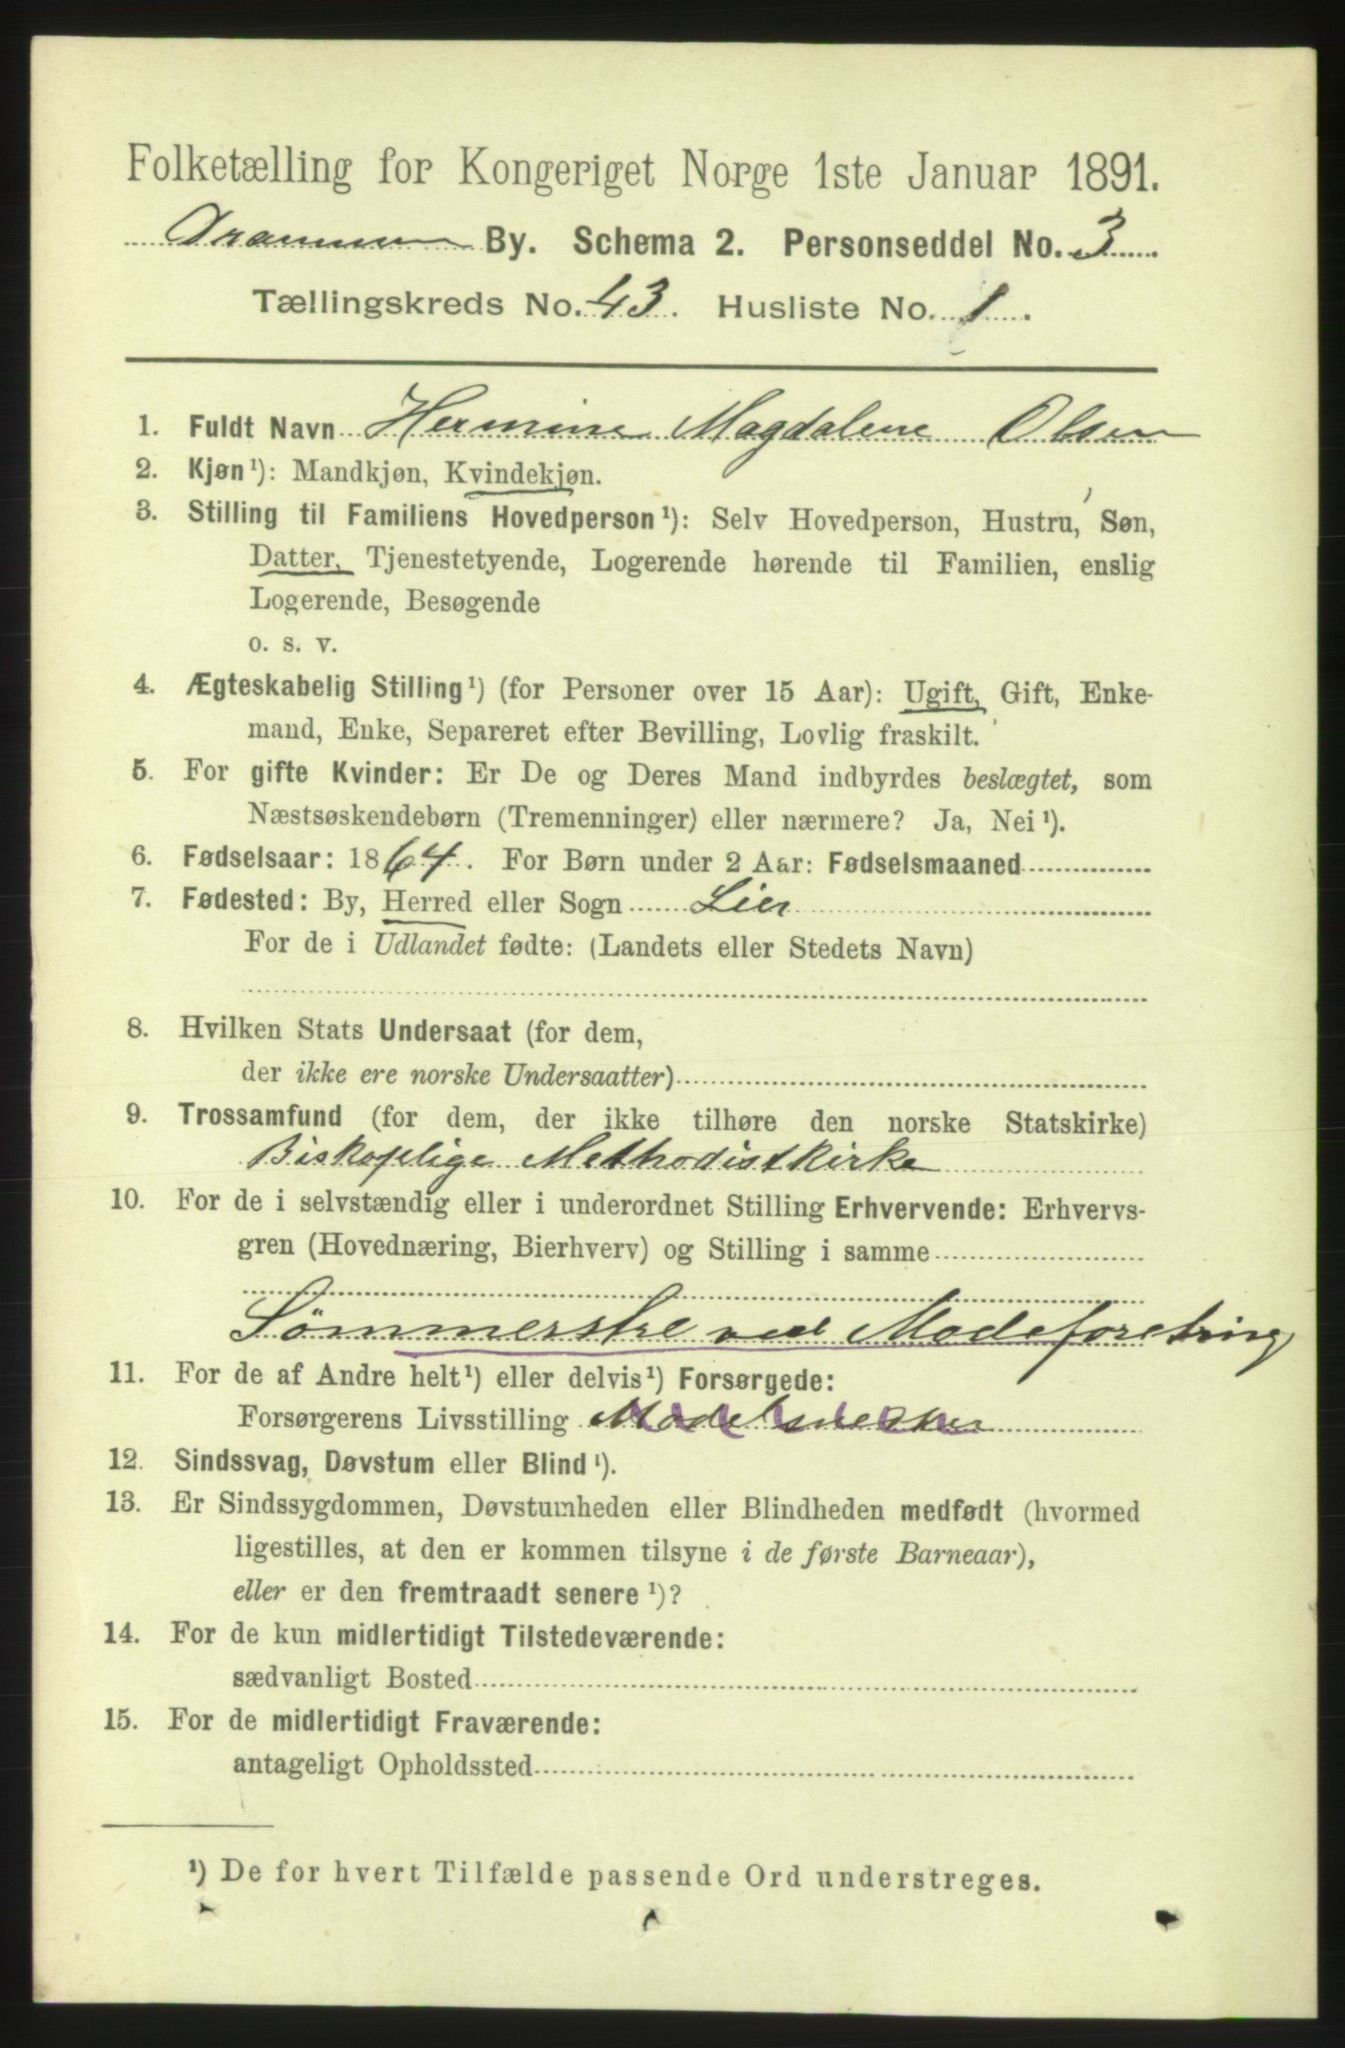 Folketælling for Kongeriget Norge 1ste Januar 1891.
Drammen By. Schema 2. Personseddel No. 3
Tællingskreds No. 43. Husliste No. 1.
1. Fuldt Navn Hermine Magdalene Olsen
2. Kjøn¹): Mandkjøn, Kvindekjøn.
3. Stilling til Familiens Hovedperson¹): Selv Hovedperson, Hustru, Søn,
Datter, Tjenestetyende, Logerende hørende til Familien, enslig
Logerende, Besøgende
o. s. v.
4. Ægteskabelig Stilling¹) (for Personer over 15 Aar): Ugift, Gift, Enke-
mand, Enke, Separeret efter Bevilling, Lovlig fraskilt.
5. For gifte Kvinder: Er De og Deres Mand indbyrdes beslægtet, som
Næstsøskendebørn (Tremenninger) eller nærmere? Ja, Nei¹).
6. Fødselsaar: 1864. For Børn under 2 Aar: Fødselsmaaned
7. Fødested: By, Herred eller Sogn Lier
For de i Udlandet fødte: (Landets eller Stedets Navn)
8. Hvilken Stats Undersaat (for dem,
der ikke ere norske Undersaatter)
9. Trossamfund (for dem, der ikke tilhøre den norske Statskirke)
Biskoplige Methodistkirke
10. For de i selvstændig eller i underordnet Stilling Erhvervende: Erhvervs-
gren (Hovednæring, Bierhverv) og Stilling i samme
Sömmerske ved Modeforetning
11. For de af Andre helt¹) eller delvis¹) Forsørgede:
Forsørgerens Livsstilling Modelsnekker
12. Sindssvag, Døvstum eller Blind¹).
13. Er Sindssygdommen, Døvstumheden eller Blindheden medfødt (hvormed
ligestilles, at den er kommen tilsyne i de første Barneaar),
eller er den fremtraadt senere¹)?
14. For de kun midlertidigt Tilstedeværende:
sædvanligt Bosted
15. For de midlertidigt Fraværende:
antageligt Opholdssted
¹) De for hvert Tilfælde passende Ord understreges.